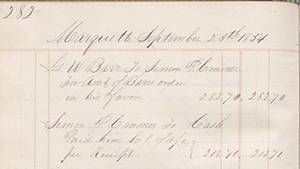 282
Marquette September 25th 1854
G W Barr To Simon P. Connor
for Amt of Barrs order
in his favor 232.70, 232.70
Simon P. Connor To Cash
Paid him bal of a/c
per Receipt 212.70 212.71